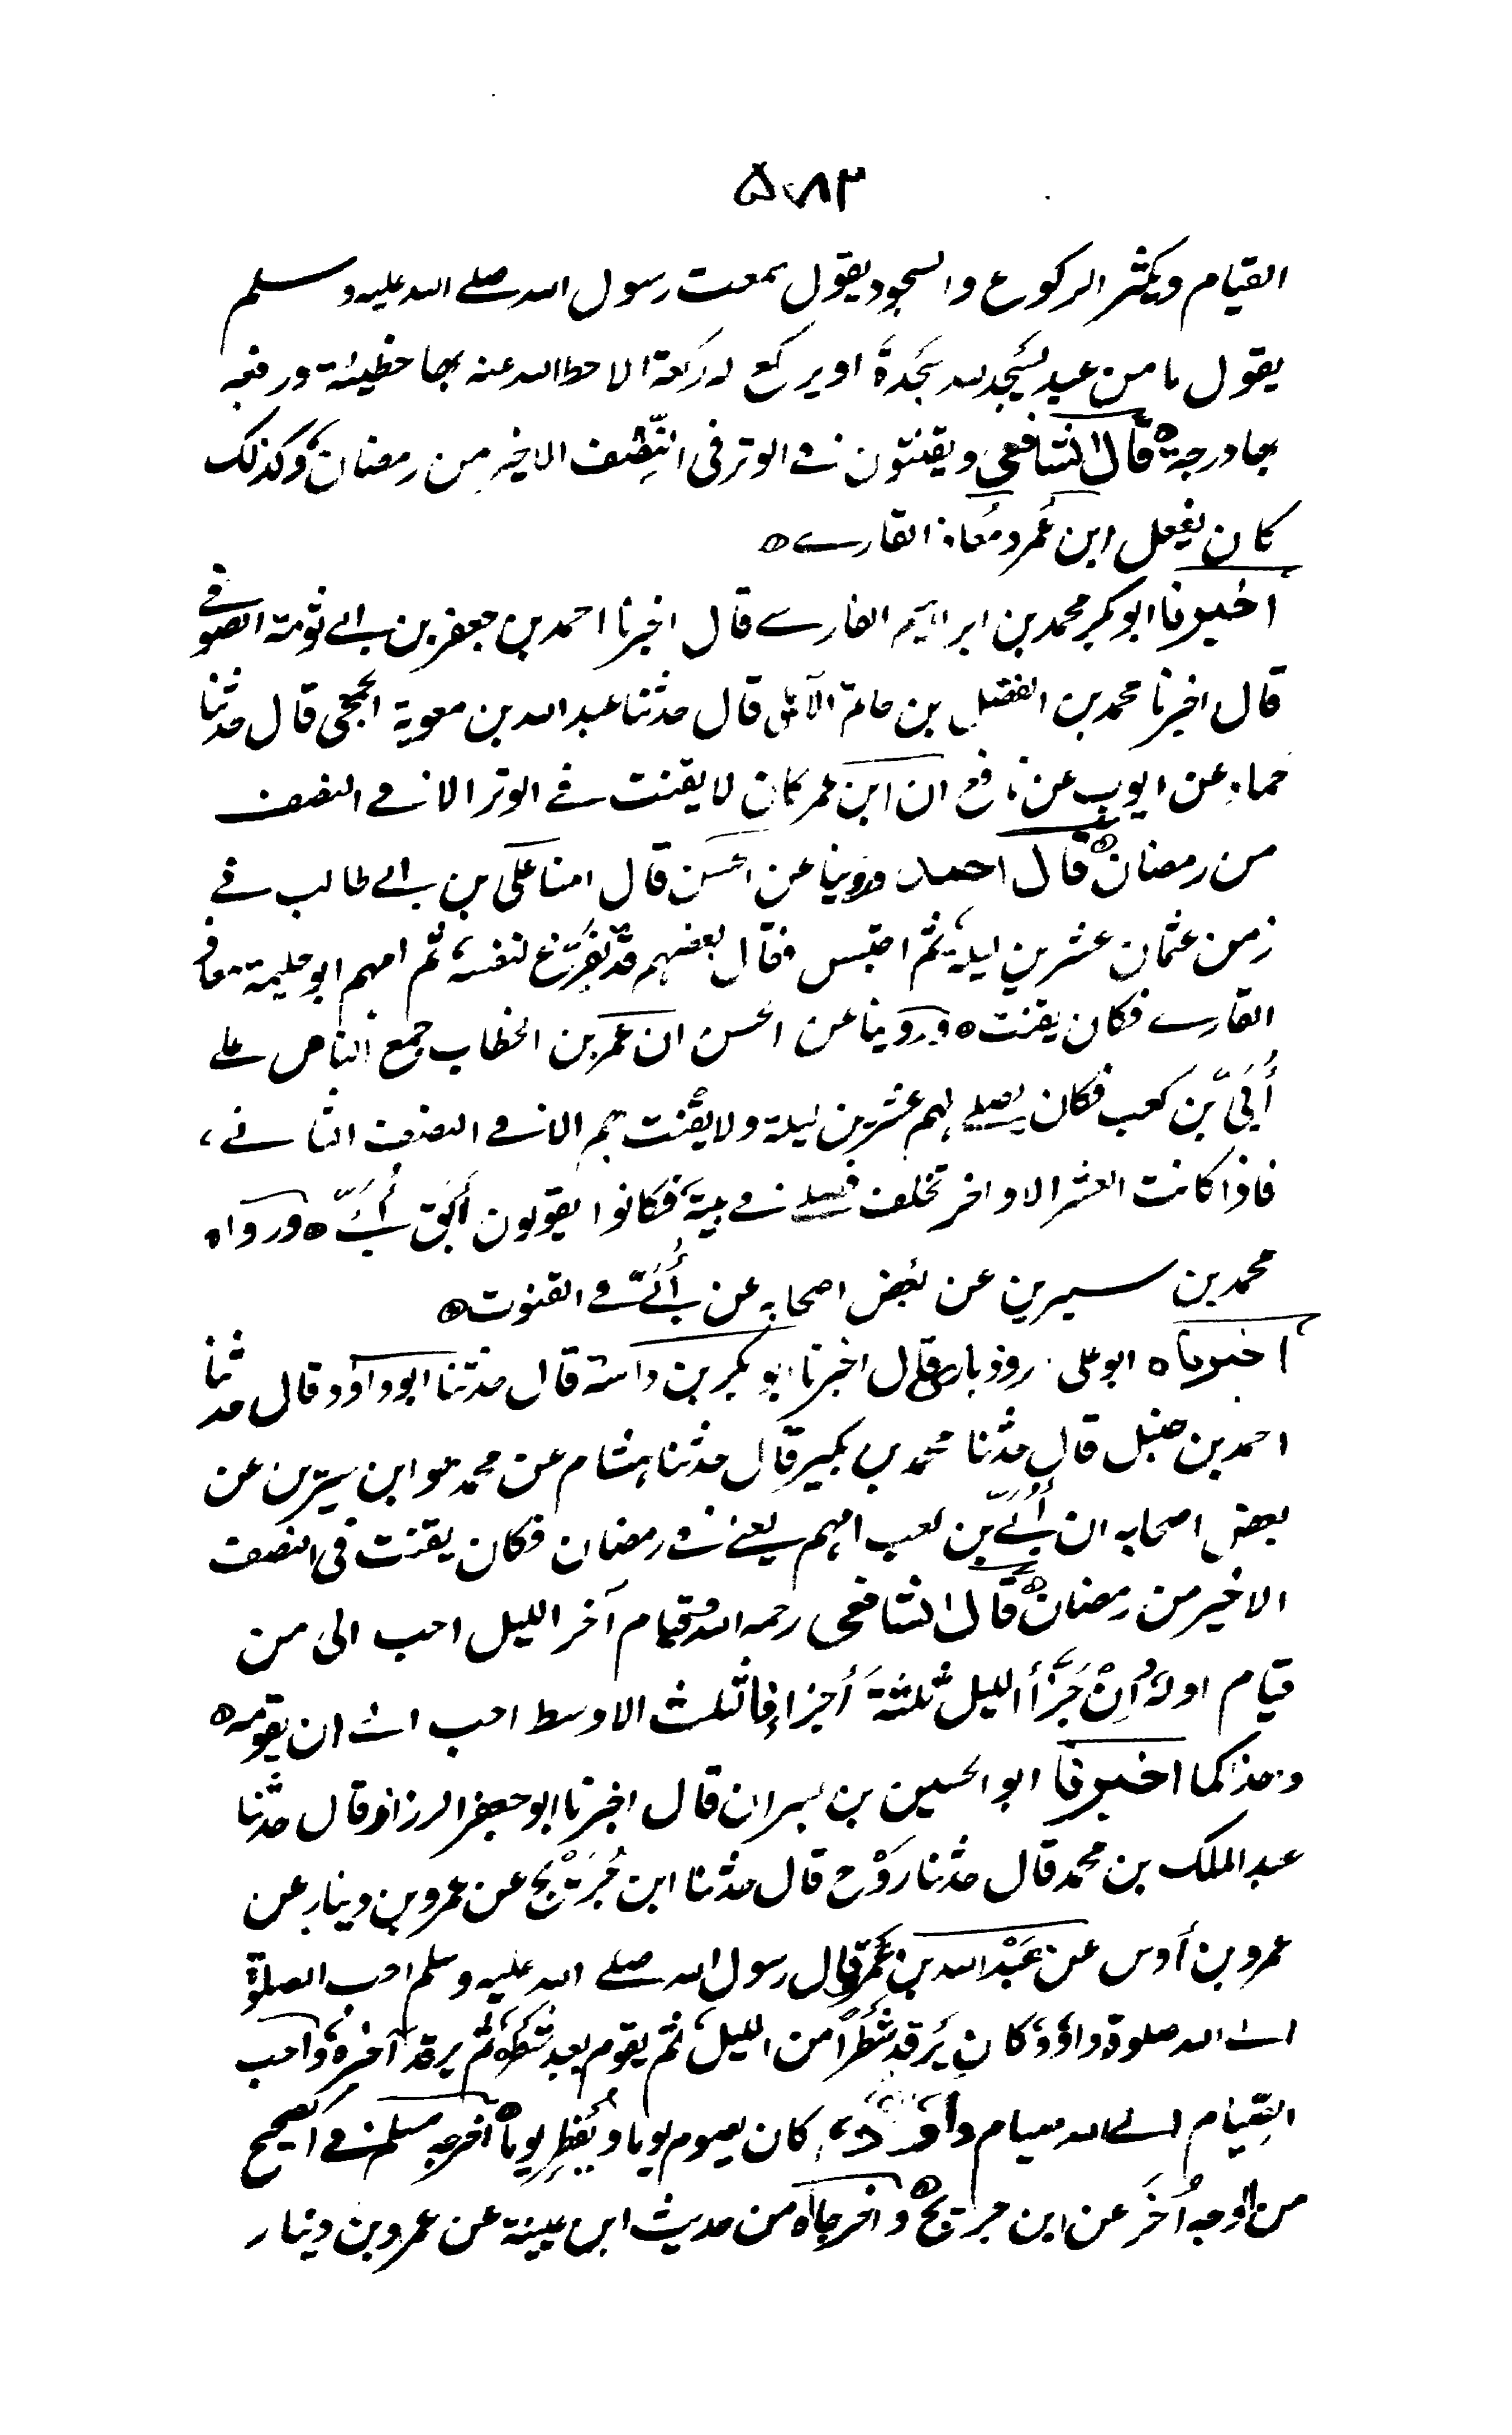 ۵۸۳
القيام ويكثر الركوع والسجود يقول سمعت رسول الله صلے الله عليه وسلم
يقول ما من عبد يَسجد لله سَجدةً او يركع له رَكعة الا حط الله عنه بها خطيئة ورفعه
بها درجة ه قال الشافعى ويقنتون فے الوتر فى النِّصْف الاخير من رمضان وكذلك
كان يفعل ابن عُمر ومُعاذ القارے ه
اخبرنا ابو بكر محمد بن ابراہيم الفارسے قال اخبرنا احمد بن جعفر بن ابے توبة الصوفے
قال اخبرنا محمد بن الفضل بن حاتم الآملى قال حدثنا عبد الله بن معوية الجمحى قال حدثنا
حماد عن ايوب عن نافع ان ابن عمر كان لا يقنت فے الوتر الا فے النصف
من رمضان ه قال احمد وروينا عن الحسن قال امنا علَى بن ابے طالب فے
زمن عثمان عشرين ليلة ثم احتبس فقال بعضہم قد تفَرّغ لنفسه ثم امہم ابو حليمة معاذ
القارے فكان يقنت ه وروينا عن الحسن ان عمر بن الخطاب جمع الناس علے
أُبَيّ بن كعب فكان يصلے لہم عشرين ليلة ولا يقنت بہم الا فے النصف الثانے،
فاذا كانت العشر الاواخر تخلف فصلے فے بيته فكانوا يقولون أَبَق أُبَيّ ه ورواه
محمد بن سيرين عن بعض اصحابه عن أُبَيّ فے القنوت ه
اخبرناه ابو على الروذبارى قال اخبرنا ابو بكر بن داسة قال حدثنا ابو داؤد قال حدثنا
احمد بن حنبل قال حدثنا محمد بن بكر قال حدثنا ہشام عن محمد ہو ابن سيرين عن
بعض اصحابه ان أُبَيّ بن كعب امہم يعنے فے رمضان فكان يقنت فى النصف
الاخير من رمضان ه قال الشافعى رحمه الله وقيام آخر الليل احب الى من
قيام اوله وَإِنْ جَزَّأ الليل ثلثةَ أجزاءٍ فالثلث الاوسط احب الے ان يقومه ه
وهذا كما اخبرنا ابو الحسين بن بشران قال اخبرنا ابو جعفر الرزاز قال حدثنا
عبد الملك بن محمد قال حدثنا رَوْح قال حدثنا ابن جُرَيْج عن عمرو بن دينار عن
عمرو بن أوس عن عَبْد الله بن عَمْرو قال رسول الله صلے الله عليه وسلم احب الصلوة
الے الله صلوة داؤد كان يَرقد شَطْراً من الليل ثم يقوم بعد شَطره ثم يرقد آخره واحب
الصِّيام الے الله صيام داؤد، كان يصوم يوما ويُفطِر يوما ه اخرجه مسلم فے الصحيح
من اوجه أُخَر عن ابن جريج ه واخرجاه من حديث ابن عيينة عن عمرو بن دينار